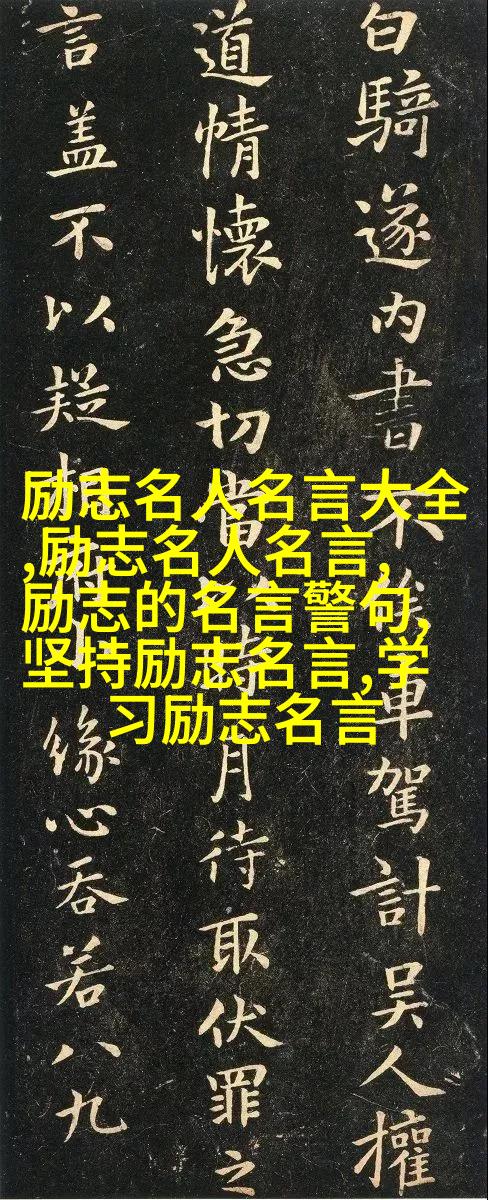 白騎遂内書不俟車駕計吴人擁
道情懷急切當時月待取伏罪之
言盖不以疑相緣心吞若八九
励志名人名言大全
,励志名人名言,
励志的名言警句,
坚持励志名言,学
习励志名言